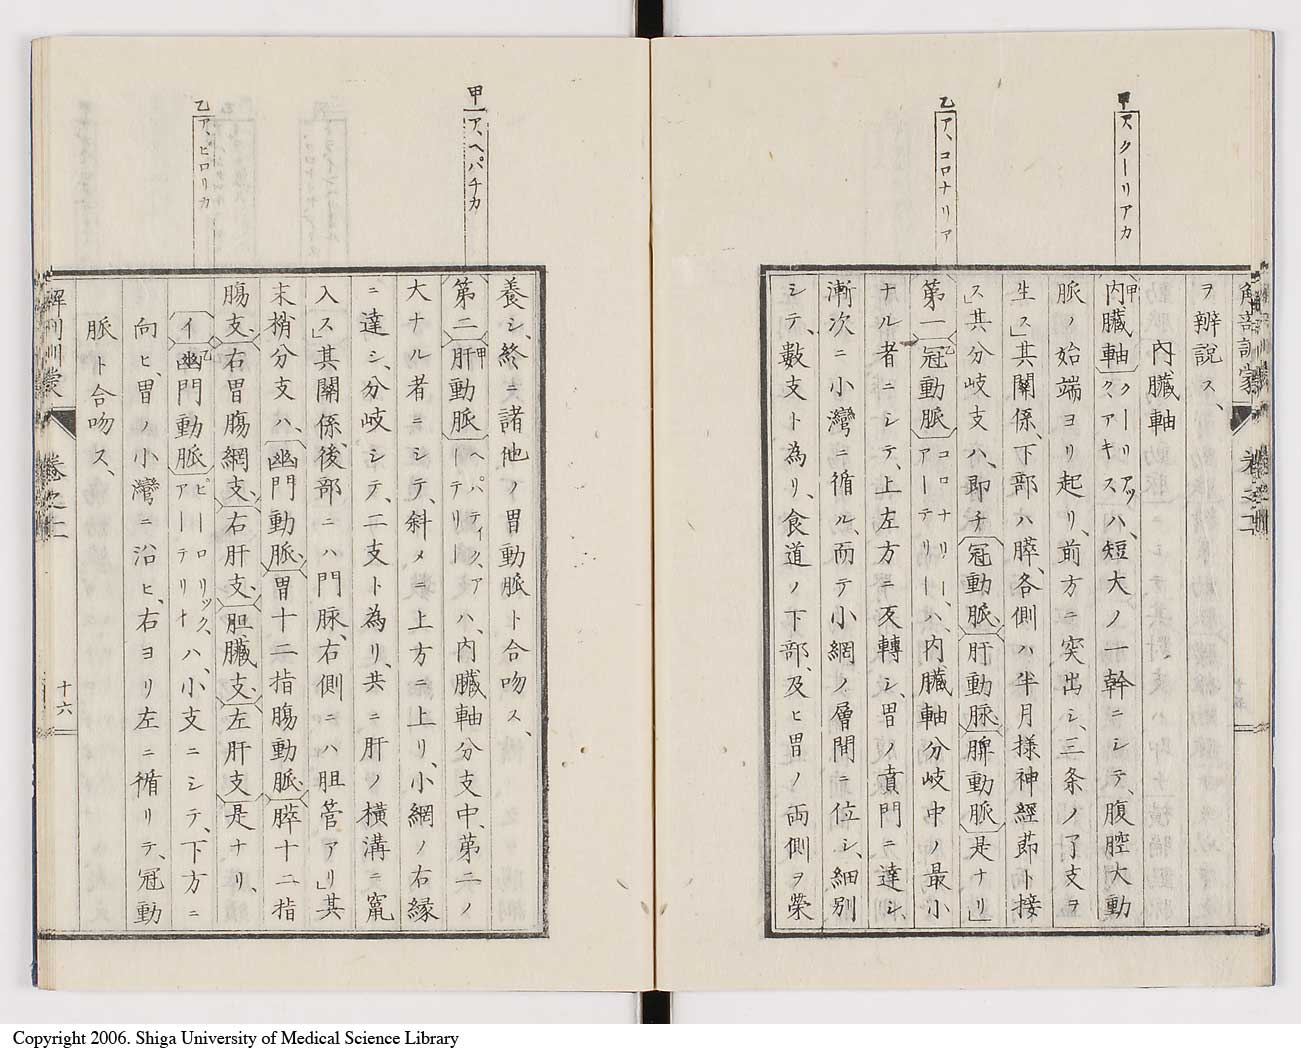 甲 ア、クーリアカ
乙 ア、コロナリア
ヲ辨説ス、
内臓軸
甲内臓軸 クーリアック、アキスス ハ、短大ノ一幹ニシテ、腹腔大動
脈ノ始端ヨリ起リ、前方ニ突出シ、三条ノ了支ヲ
生ス」其関係、下部ハ膵、各側ハ半月様神経節ト接
ス」其分岐支ハ、即チ冠動脈、肝動脈、脾動脈是ナリ」
第一冠動脈 乙 コロナリー、アーテリー ハ、内臓軸分岐中ノ最小
ナル者ニシテ、上左方ニ反轉シ、胃ノ賁門ニ達シ、
漸次ニ小灣ニ循ル、而テ小網ノ層間ニ位シ、細別
シテ、數支ト為リ、食道ノ下部、及ヒ胃ノ両側ヲ榮
甲 ア、ヘパチカ
乙 ア、ピロリカ
養シ、終ニ諸他ノ胃動脈ト合吻ス、
第二肝動脈 甲 ヘパティック、アーテリー ハ、内臓軸分支中、第二ノ
大ナル者ニシテ、斜メニ上方ニ上リ、小網ノ右縁
ニ達シ、分岐シテ、二支ト為リ、共ニ肝ノ横溝ニ竄
入ス」其關係、後部ニハ門脉、右側ニハ胆管アリ」其
末梢分支ハ、幽門動脈、胃十二指腸動脈、膵十二指
腸支、右胃腸網支、右肝支、胆臓支、左肝支是ナリ、
イ幽門動脈 乙 ピーロリック、アーテリナ ハ、小支ニシテ、下方ニ
向ヒ、胃ノ小灣ニ沿ヒ、右ヨリ左ニ循リテ、冠動
脈ト合吻ス、
十六